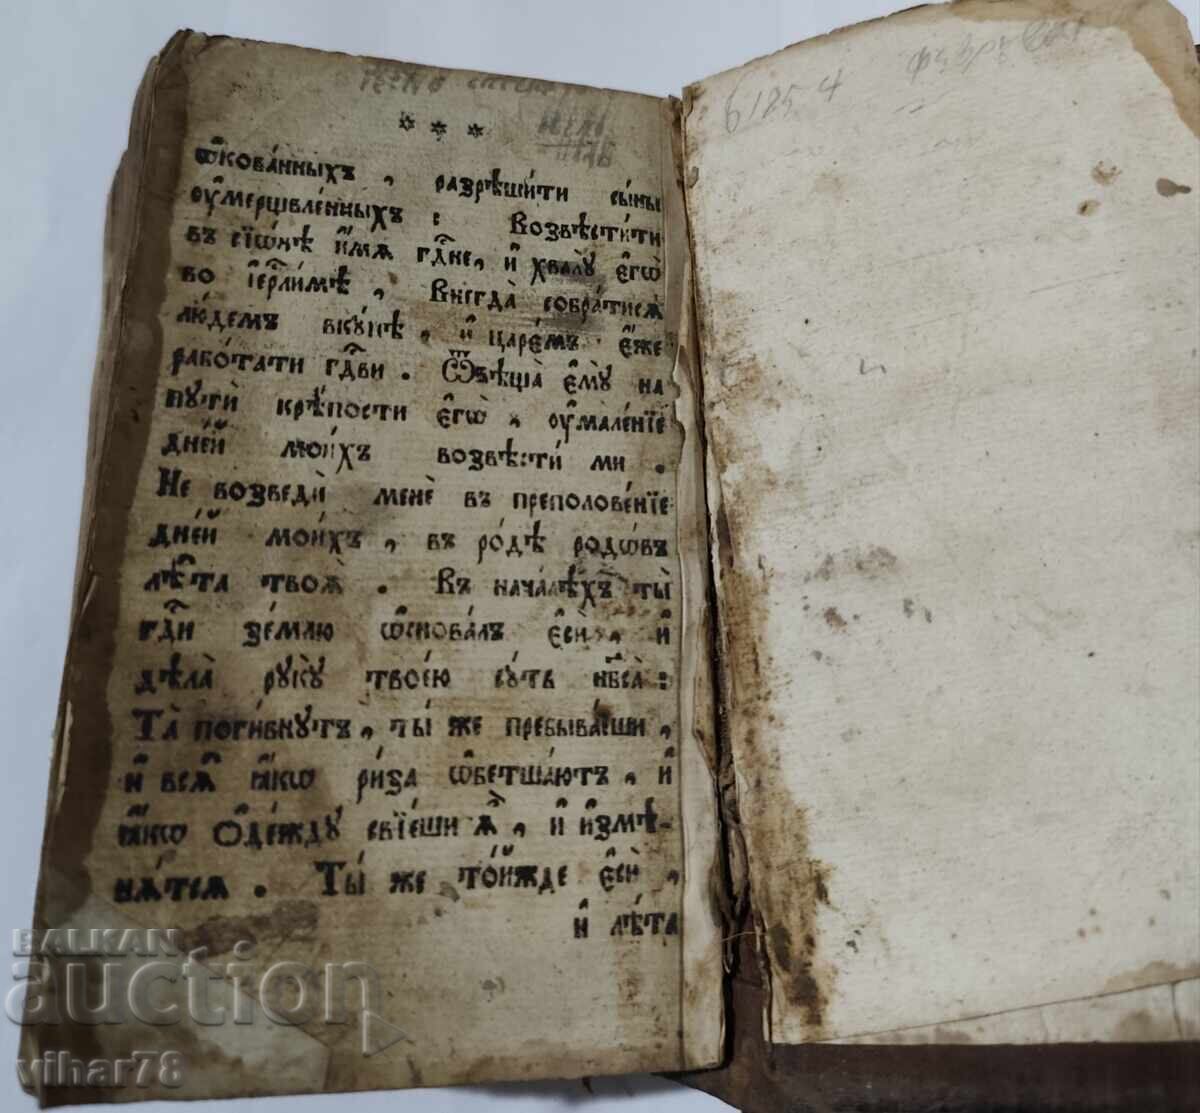 * * *
ѡ҆кова́нныхъ, разрѣши́ти сы́ны
ᲂу҆мерщвле́нныхъ: Возвѣсти́ти
въ сїѡ́нѣ и҆́мѧ гдⷭ҇не, и҆ хвалꙋ̀ є҆гѡ̀
во і҆ерⷭ҇ли́мѣ, Внегда̀ собра́тисѧ
лю́демъ вкꙋ́пѣ, и҆ царе́мъ є҆́же
рабо́тати гдⷭ҇ви. Ѿвѣща̀ є҆мꙋ̀ на
пꙋтѝ крѣ́пости є҆гѡ̀, ᲂу҆мале́нїе
дне́й мои́хъ возвѣсти́ ми.
Не возведѝ менѐ въ преполове́нїе
дне́й мои́хъ, въ ро́дѣ родѡ́въ
лѣ҆́та твоѧ̀. Въ нача́лѣхъ ты̀
гдⷭ҇и зе́млю ѡ҆снова́лъ є҆сѝ, и҆
дѣла̀ рꙋкꙋ̀ твоє́ю сꙋ́ть нб҃са̀:
Та̑ поги́бнꙋтъ, ты́ же пребыва́еши,
и҆ всѧ̑ ꙗ҆́кѡ ри́за ѡ҆бетша́ютъ, и҆
ꙗ҆́кѡ ѻ҆де́ждꙋ свїе́ши ѧ҆̀, и҆ и҆змѣ-
нѧ́тсѧ. Ты́ же то́йжде є҆сѝ,
и҆ лѣ́та
6185 4
BALKAN
auction
vihar78